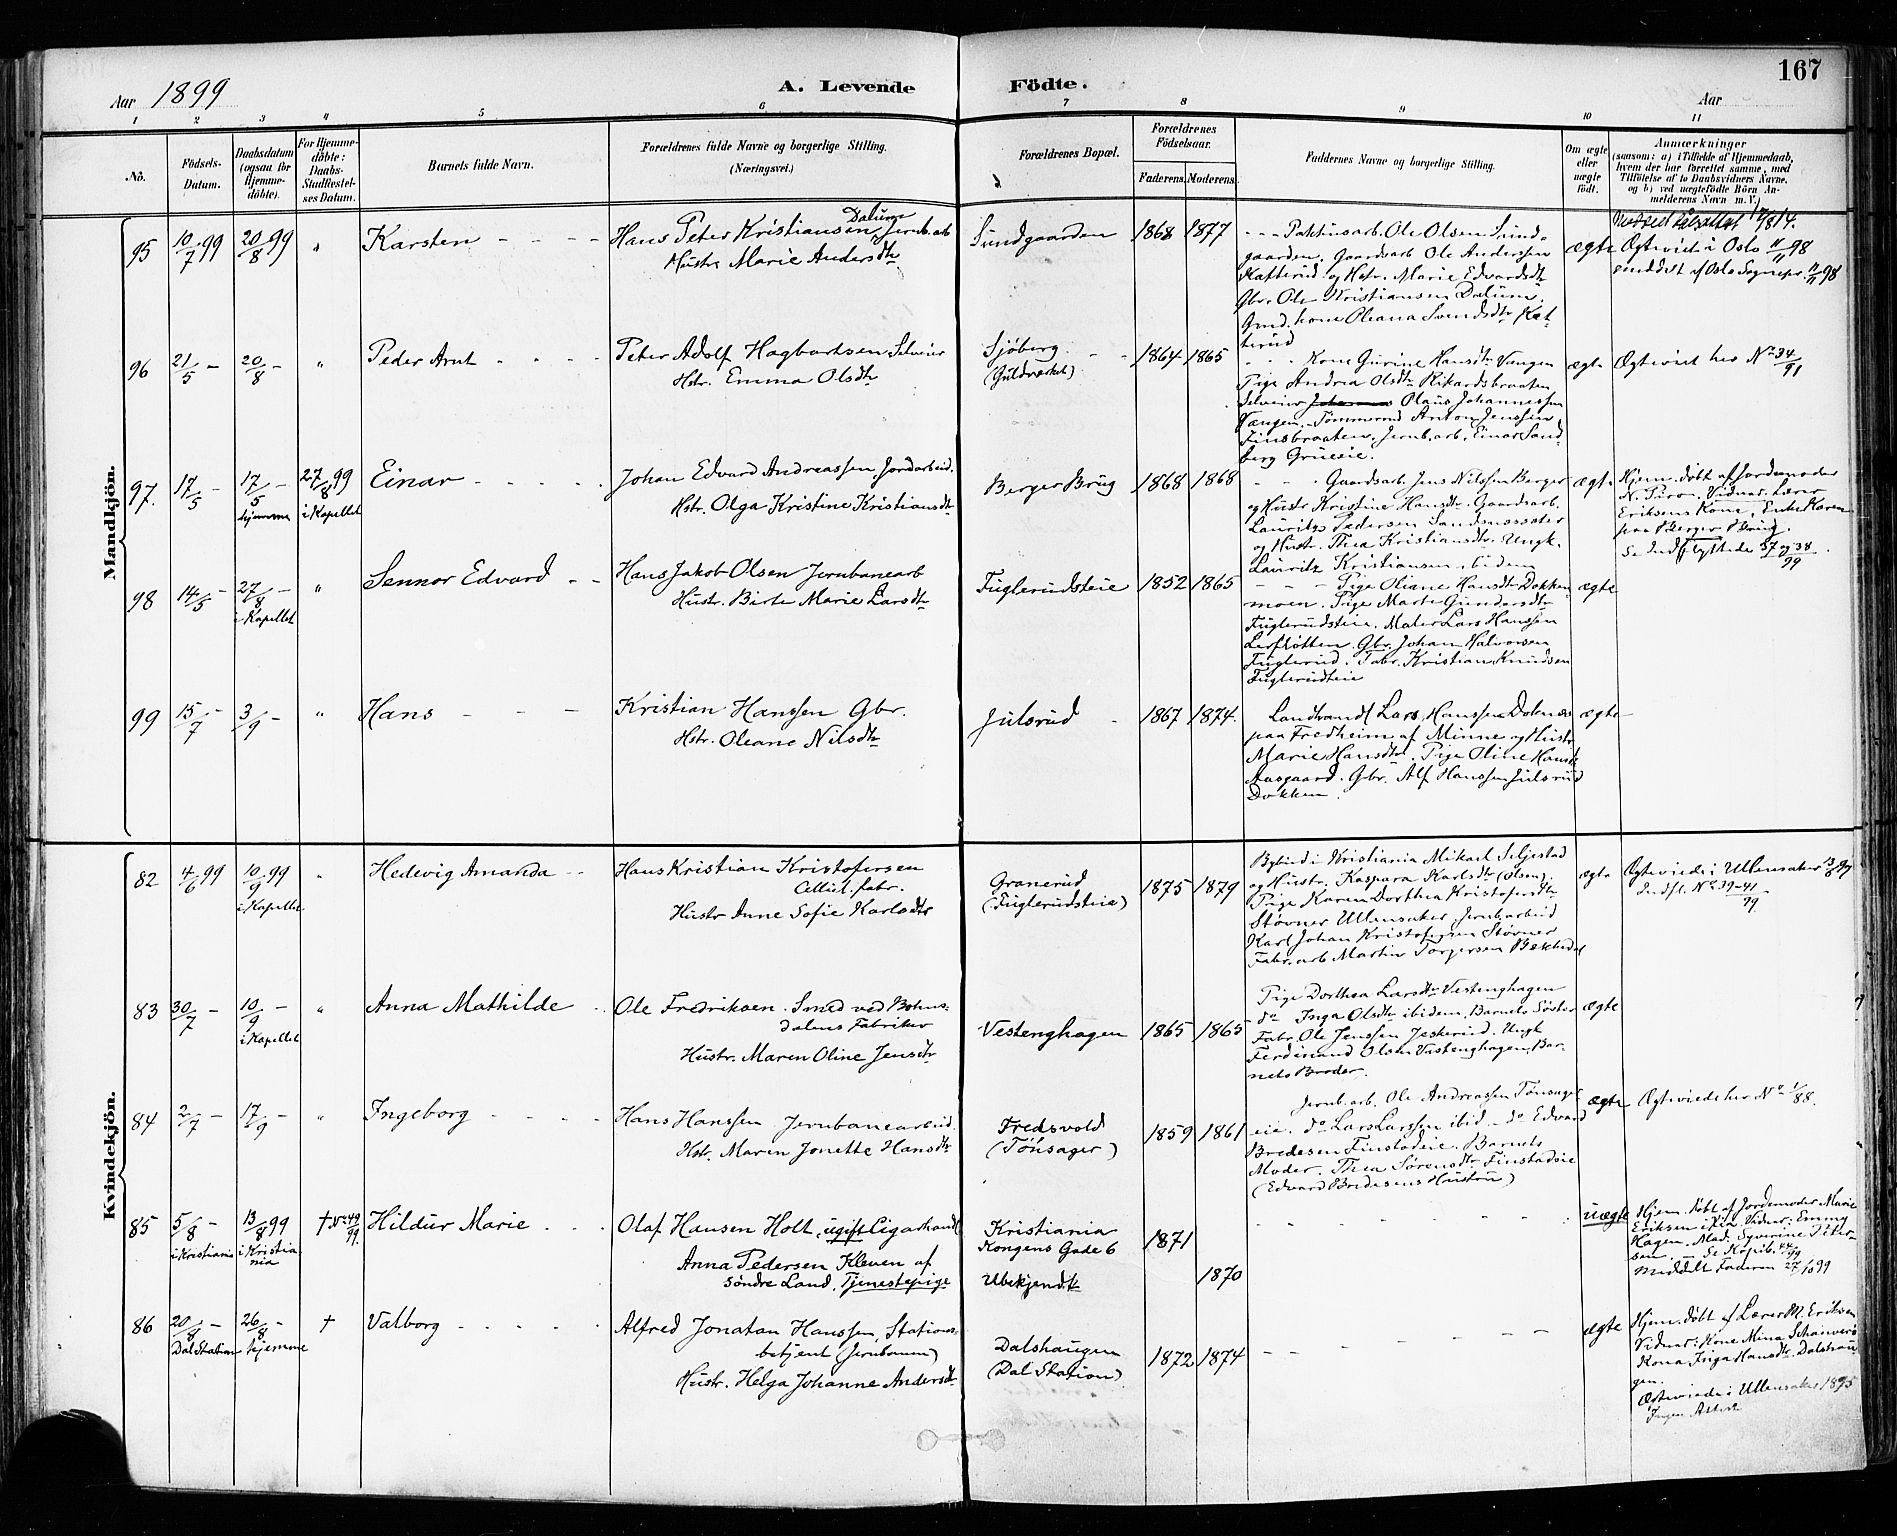 167
Aar 1899
A. Levende
Födte.
Aar
1
2
3
4
5
6
7
8
9
10
11
No.
Födsels-
Datum.
Daabsdatum
(ogsaa for
Hjemme-
döbte).
For Hjemme-
döbte:
Daabs-
Stadfæstel-
ses Datum.
Barnets fulde Navn.
Forældrenes fulde Navne og borgerlige Stilling.
(Næringsvei.)
Forældrenes Bopæl.
Forældrenes
Födselsaar.
Faderens.
Moderens.
Faddernes Navne og borgerlige Stilling.
Om ægte
eller
uægte
födt.
Anmærkninger
(saasom: a) i Tilfælde af Hjemmedaab,
hvem der har forrettet samme, med
Tilföielse af to Daabsvidners Navne,
og b) ved uægtefödte Börn An-
melderens Navn m. V.)
Mandkjön.
95
10/7 99
20/8 99
"
Karsten
Hans Peter Kristiansen Dalum Jernb.arb
Hustr. Marie Andersdtr
Sundgaarden
1868
1877
Pakhusarb. Ole Olsen Sund-
gaarden. Gaardarb Ole Andersen
Katterud og Hstr. Marie Edvardsdtr
Gbr. Ole Kristiansen Dalum.
Gmd. kone Oleana Svendsdtr Kat-
terud
ægte
Ægteviet i Oslo 11/11 98
96
21/5 -
20/8 -
"
Peder Arnt
Peter Adolf Hagbartsen Selveier
Hstr. Emma Olsdtr
Sjöberg
(Guldværket)
1864
1865
Kone Gurine Hansdtr Vangen
Pige Andrea Olsdtr Rikardsbraaten
Selveier Olaus Johannessen
Vangen. Tömmermd Anton Jenssen
Finsbraaten. Jernb.arb. Einar Sand-
berg Grueeie.
ægte
Ægteviet her No 34/91
97.
17/5 -
17/5 -
hjemme
27/8 99
i Kapellet
Einar
Johan Edvard Andreassen Jordarbeid.
Hstr. Olga Kristine Kristiansdtr
Berger Brug
1868
1868
Gaardarb. Jens Nilsen Berger
og Hustr Kristine Hansdtr. Gaardarb.
Laurits Pedersen Sandmosseter
og Hustr. Thea Kristiansdtr. Ungk.
Lauritz Kristiansen, ibidem
ægte
Hjem.döbt af Jordemoder
N. Puron. Vidner: Lærer
Eriksens Kone, Enke Karen
paa Berger Brug.
Se Indflyttede 37 og 38/99
98
14/5 -
27/8 -
i Kapellet
"
Sennor Edvard
Hans Jakob Olsen Jernbanearb
Hustr. Birte Marie Larsdtr
Fuglerudsteie
1852
1865
Pige Oliane Hansdtr Dokken
moen. Pige Marte Gundersdtr
Fuglerudsteie. Maler Lars Hanssen
Gbr. Johan Halvorsen
Fuglerud. Fabr. Kristian Knudsen
Fuglerudteie
ægte
99
15/7 -
3/9 -
"
Hans
Kristian Hanssen Gbr.
Hstr. Oleane Nilsdtr
Julsrud
1867
1874.
Landhandl Lars Hanssen Dolnæs
paa Fredheim af Minne og Hustr
Marie Hansdtr. Pige Oline Hansdtr
Aasgaard. Gbr. Alf Hanssen Julsrud
Dokken.
ægte
Kvindekjön.
82
4/6 99
10/9 99
i Kapellet
"
Hedevig Amanda
Hans Kristian Kristofersen
Cellul. fabr.
Hustr Anne Sofie Karlsdtr
Granerud
(Fuglerudsteie)
1875
1879
Bybud i Kristiania Mikael Seljestad
og Hustr. Kaspara Karlsdtr (Olsen).
Pige Karen Dorthea Kristofersdtr
Støvner Ullensaker. Jernb.arbeid
Karl Johan Kristofersen Støvner
Fabr.arb Martin Torgersen Bækkedal
ægte
Ægteviede i Ullensaker
Indfl. No 39-41/99
83
30/7 -
10/9 -
i Kapellet
"
Anna Mathilde
Ole Fredriksen. Smed ved Böhns-
dalens Fabriker
Hustr. Maren Oline Jensdtr
Vestenghagen
1865
1865
Pige Dorthea Larsdtr Vestenghagen
do Inga Olsdtr ibidem, Barnets Söster
Fabr. Ole Jenssen Jeskerud. Ungk
Ferdinand Olsen Vestenghagen, Bar-
nets Broder.
ægte
84
2/7 -
17/9 -
"
Ingeborg
Hans Hanssen Jernbanearbeid.
Hstr. Maren Jonette Hansdtr
Fredsvold
(Tönsager)
1859
1861
Jernb.arb. Ole Andreassen Tönsager
eie. do Lars Larssen ibid - do Edvard
Bredesen Finstadeie. Barnets
Moder. Thea Sörensdtr Finstadeie
(Edvard Bredesens Hustru)
ægte
Ægteviede her No 1/88.
85
5/8 -
i Kristiania
13/8 99
i Kristia
nia
† No 49/99
Hildur Marie
Olaf Hansen Holt, ugift Cigarhandl
Anna Pedersen Kleven af
söndre Land, Tjenestepige
Kristiania
Kongens Gade 6
Ubekjendt
1871
1870
uægte
Hjem.döbt af Jordemoder Marie
Eriksen i Kra Vidner: Emmy
Hagen, Mad. Syverine Peter-
sen. - Se Kopib. 44/99
Meddelt Faderen 27/10 99
86
20/8 -
Dal Station
26/8 -
hjemme
†
Valborg
Alfred Jonatan Hanssen, Stations-
betjent (Jernbanen)
Hustr. Helga Johanne Andersdtr
Dalshaugen
(Dal Station)
1872
1874
ægte
Hjem.döbt af Lærer M. Eriksen
Vidner: Kone Mina Schanverö
Kona Inga Hansdtr. Dalshau
gen.
Ægteviede i Ullensaker 1895
Ingen Attest